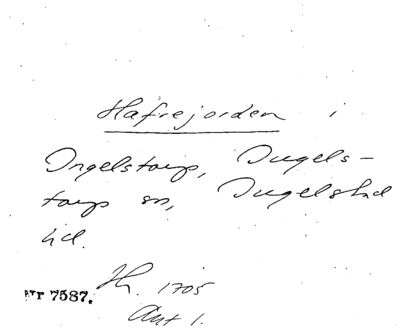 Hafrejorden i
Ingelstorp, Ingels-
torps sn, Ingelstad
hd.
Hh. 1705
Nr 7587.
Avt 1.